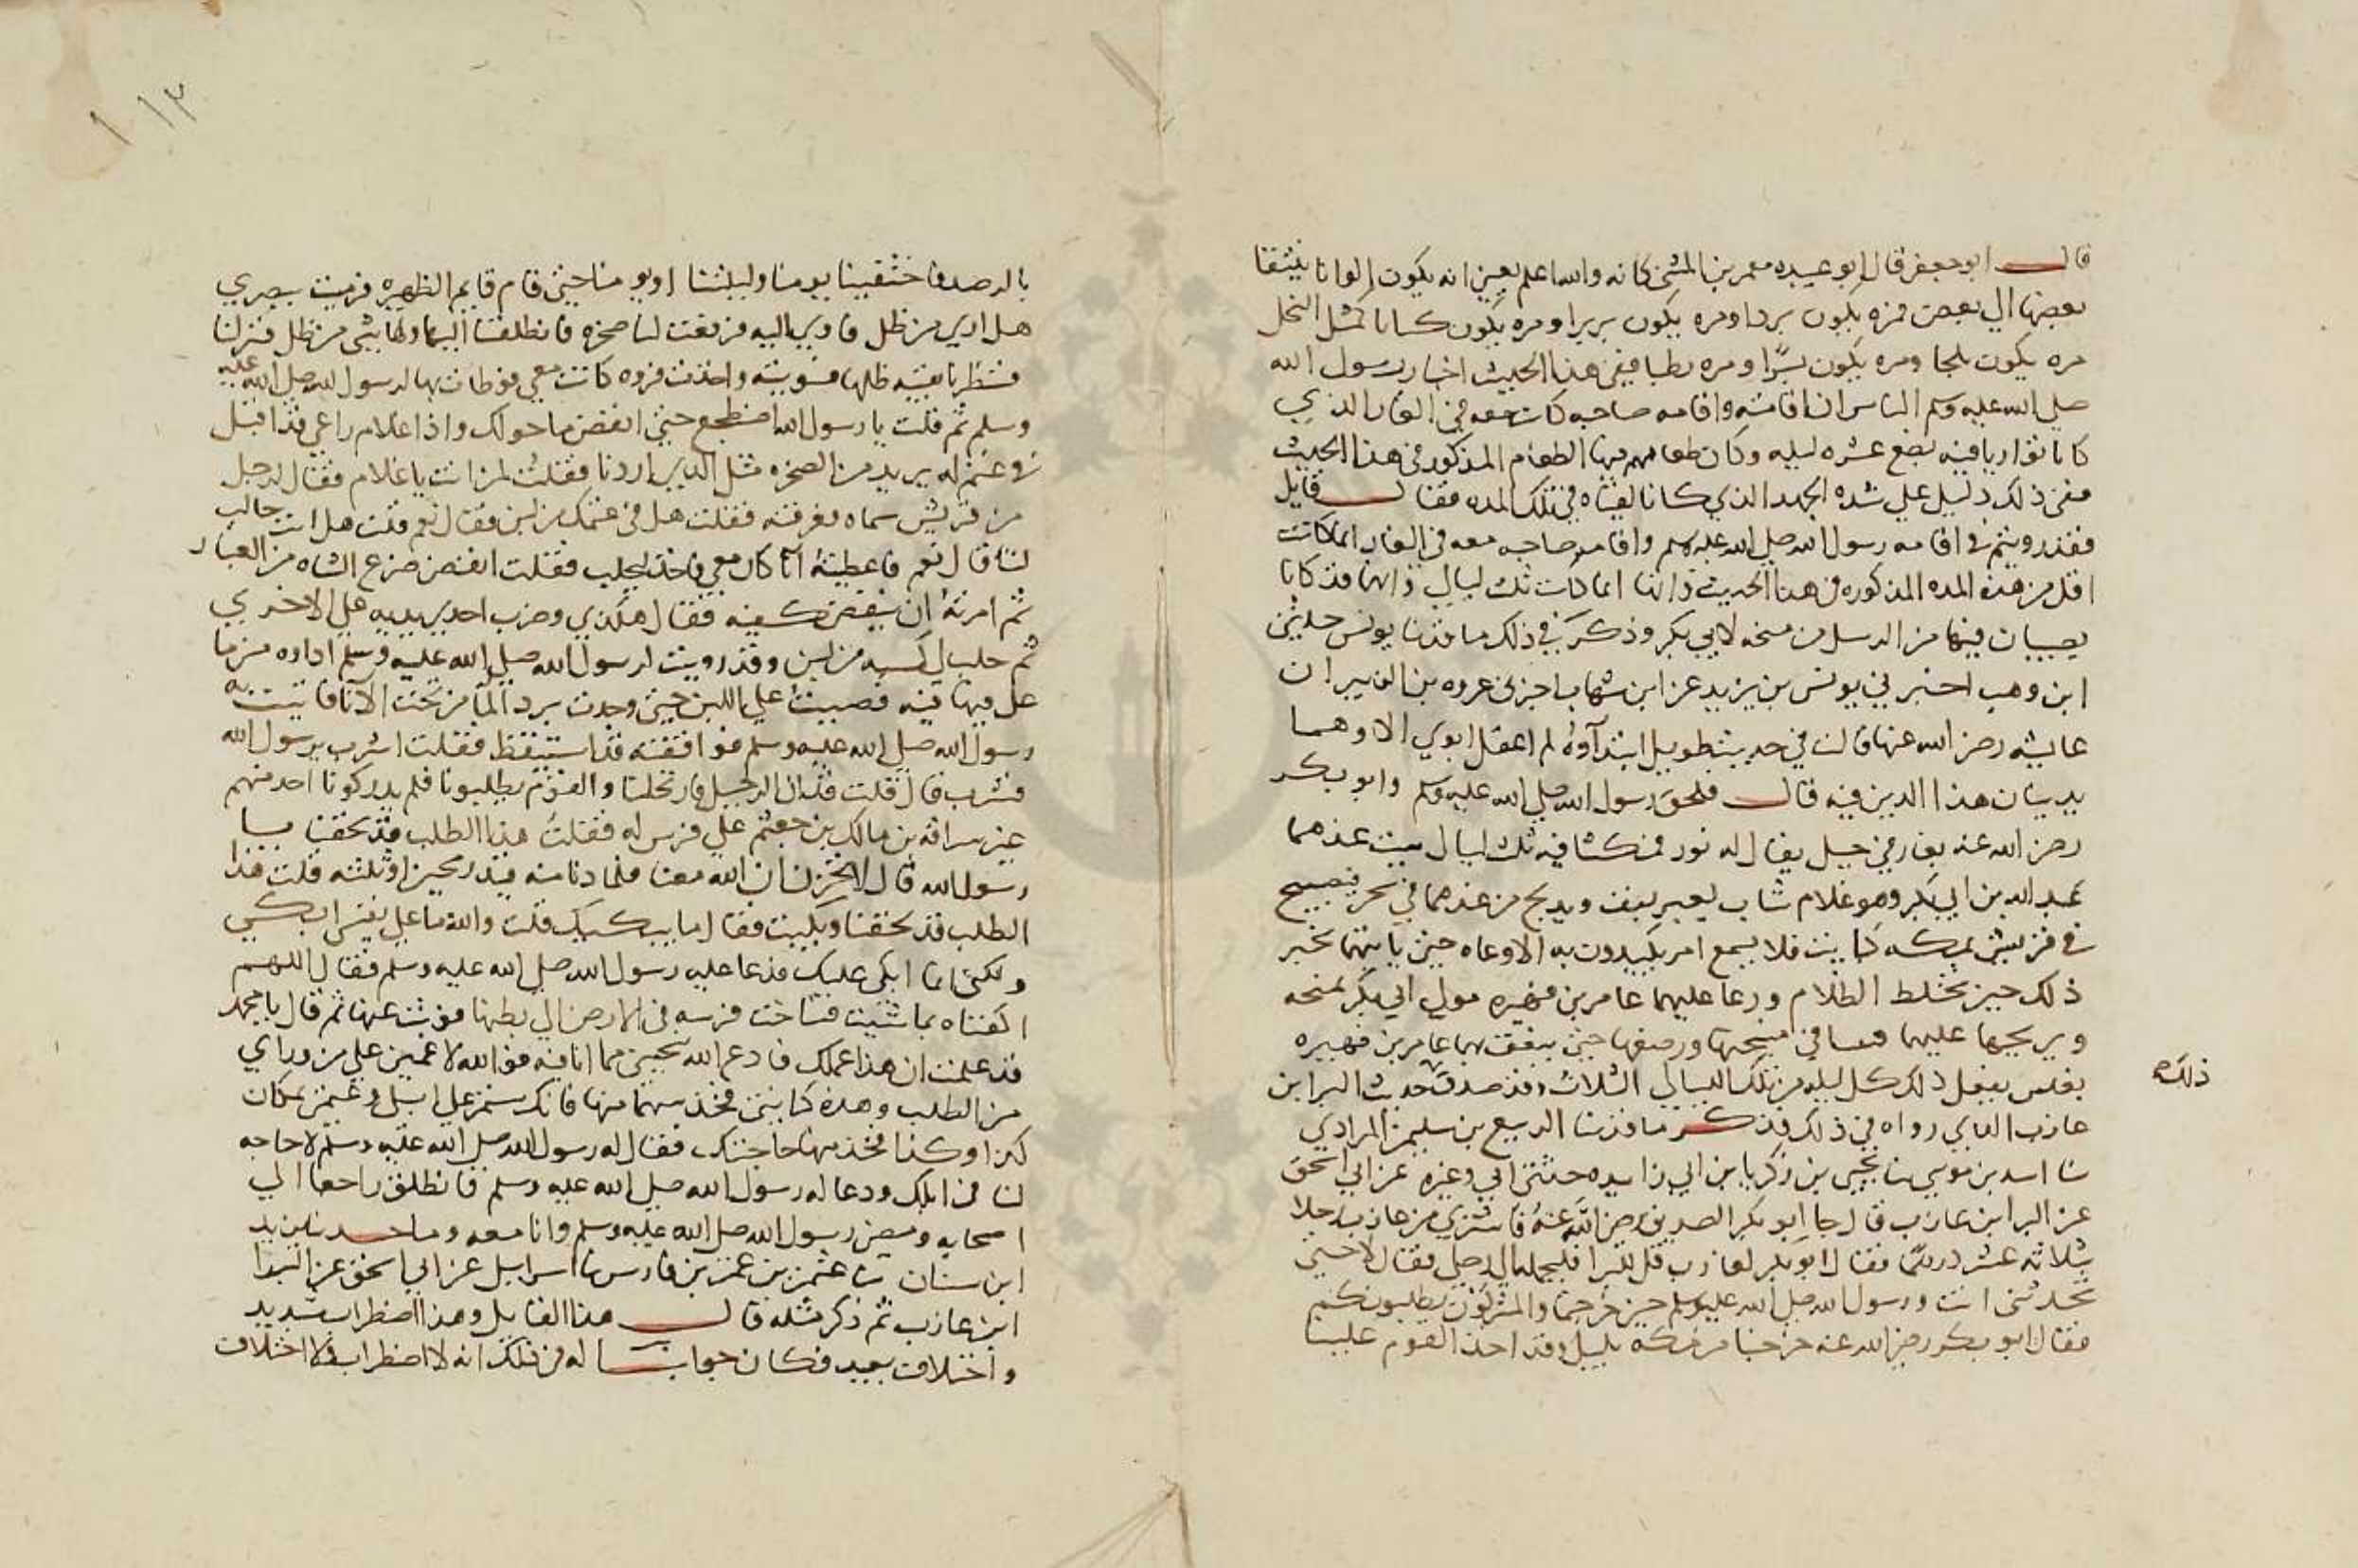 قال ابو جعفر قال ابو عبيده معمر بن المثنى كانه والله اعلم يعني انه يكون الوانا
بعضها الي بعض فمره يكون بردا ومره يكون بريرا ومره يكون كباثا كمثل النخل
مره يكون بلحا ومره يكون بسرا ومره رطبا ففي هذا الحديث اخبار رسول الله
صلي الله عليه وسلم الناس ان اقامته واقامه صاحبه كان معه في الغار الذي
كانا تواريا فيه بضع عشره ليله وكان طعامهم فيها الطعام المذكور في هذا الحديث
ففي ذلك دليل علي شده الجهد الذي كانا لقياه في تلك المده فقال قايل
فقد رويتم في اقامه رسول الله صلي الله عليه وسلم واقامه صاحبه معه في الغار انما كانت
اقل من هذه المده المذكوره في هذا الحديث وانها انما كانت ثلث ليال وانهما قد كانا
يصيبان فيها من الرسل من منحه لابي بكر وذكر في ذلك ما قد نا يونس حدثني
ابن وهب اخبرني يونس بن يزيد عن ابن شهاب اخبرني عروه بن الزبير ان
عايشه رضي الله عنها قالت في حديث طويل ابتدآوه لم اعقل ابوي الا وهما
يدينان هذا الدين فيه قال فلحق رسول الله صلي الله عليه وسلم وابو بكر
رضي الله عنه بغار في جبل يقال له ثور فمكثا فيه ثلث ليال يبيت عندهما
عبد الله بن ابي بكر وهو غلام شاب لقن ثقف ويدلج من عندهما في سحر فيصبح
في قريش بمكه كبايت فلا يسمع امر يكيدون به الا وعاه حتى ياتيهما بخبر
ذلك حين يختلط الظلام ورعا عليهما عامر بن فهيره مولي ابي بكر بمنحه
ويريحها عليهما فيبيتا في منحتها ورضفها حتى ينعق بها عامر بن فهيره
بغلس يفعل ذلك كل ليله من تلك الليالي الثلاث وقد صدق حديث البرا بن
ذلك
عازب الذي رواه في ذلك فذكر ما قد نا الربيع بن سليمن المرادي
نا اسد بن موسي نا يحيى بن زكريا بن ابي زايده حدثني ابي وغيره عن ابي اسحق
عن البرا بن عازب قال جا ابو بكر الصديق رضي الله عنه فاشتري من عازب رحلا
بثلاثه عشر درهما فقال ابو بكر لعازب قل للبرا فليحمله الي رحلي فقال لا حتى
تحدثني انت ورسول الله صلي الله عليه وسلم حين خرجتما والمشركون يطلبونكم
فقال ابو بكر رضي الله عنه خرجنا من مكه بليل وقد اخذ القوم علينا
بالرصد فاختفينا يومنا وليلتنا او يومنا حتى قام قايم الظهيره فرميت ببصري
هل اري من ظل فاوي اليه فرفعت لنا صخره فانطلقنا اليها ولها شي من ظل فنزلنا
فنظرنا بقيه ظلها فسويته واخذت فروه كانت معي فوطات بها لرسول الله صلي الله عليه
وسلم ثم قلت يا رسول الله اضطجع حتى انفض ما حولك واذا غلام راعي قد اقبل
في غنم له يريد من الصخره مثل الذي اردنا فقلت لمن انت يا غلام فقال لرجل
من قريش سماه فعرفته فقلت هل في غنمك من لبن فقال نعم قلت هل انت حالب
لنا قال نعم فاعطيته انا كان معي فاخذ ليحلب فقلت انفض ضرع الشاه من الغبار
ثم امرته ان ينفض كفيه فقال هكذي وضرب احدي يديه علي الاخري
ثم حلب لي كثبه من لبن وقد رويت لرسول الله صلي الله عليه وسلم اداوه من ما
علي فيها فيه فصببت علي اللبن حتى وجدت برد المآ من تحت الانا فاتيت به
رسول الله صلي الله عليه وسلم فوافقته قد استيقظ فقلت اشرب يرسول الله
فشرب قال قلت قد ان الرحيل فارتحلنا والقوم يطلبونا فلم يدركونا احد منهم
غير سراقه بن مالك بن جعثم علي فرس له فقلت هذا الطلب قد لحقنا يا
رسول الله قال لا تحزن ان الله معنا فلما دنا منه قيد رمحين او ثلثه قلت هذا
الطلب قد لحقنا وبكيت فقال ما يبكيك قلت والله ما علي نفسي ابكي
ولكني انما ابكي عليك فدعا عليه رسول الله صلي الله عليه وسلم فقال اللهم
اكفناه بما شيت فساخت فرسه في الارض الي بطنها فوثب عنها ثم قال يا محمد
قد علمت ان هذا عملك فادع الله ينجيني مما انا فيه فوالله لاعمين علي من وراي
من الطلب وهذه كنانتي فخذ سهما منها فانك ستمر علي ابل وغنم بمكان
كذا وكذا فخذ منها حاجتك فقال له رسول الله صلي الله عليه وسلم لا حاجه
لنا في ابلك ودعا له رسول الله صلي الله عليه وسلم فانطلق راجعا الي
اصحابه ومضي رسول الله صلي الله عليه وسلم وانا معه وما حدثنا يزيد
ابن سنان نا عثمن بن عمر بن فارس نا اسرايل عن ابي اسحق عن البرا
ابن عازب ثم ذكر مثله قال هذا القايل وهذا اضطراب شديد
واختلاف بعيد فكان جوابنا له في ذلك انه لا اضطراب ولا اختلاف